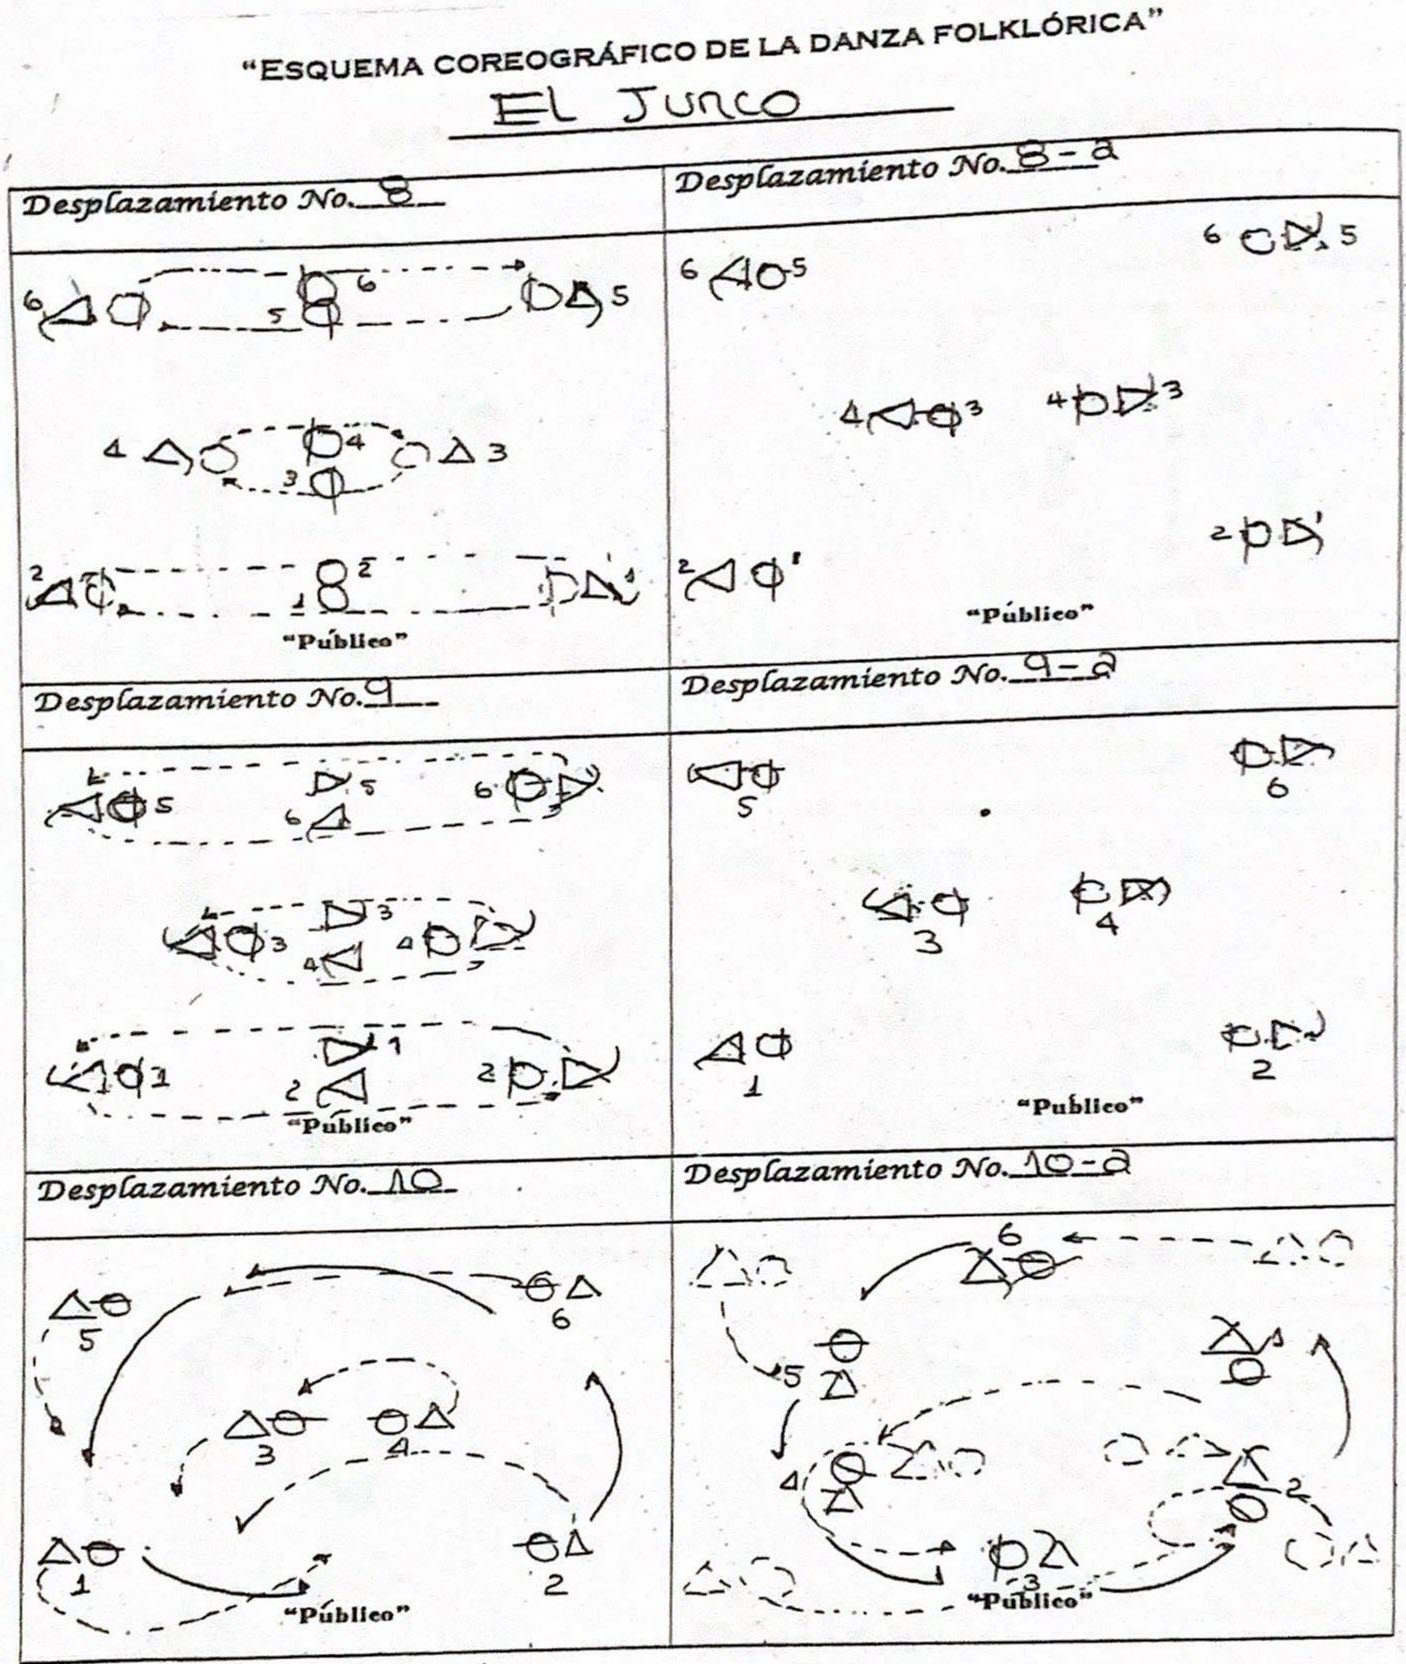 “ESQUEMA COREOGRÁFICO DE LA DANZA FOLKLÓRICA”
EL JUNCO
Desplazamiento No. 8
Desplazamiento No. 8-a
6 5 6 5
4 3 4 3
2 1 2 1
“Público”
6 5 6 5
4 3 4 3
2 1 2 1
“Público”
Desplazamiento No. 9
Desplazamiento No. 9-a
5 6 5 6
3 4 3 4
1 2 1 2
“Público”
5 6
3 4
1 2
“Público”
Desplazamiento No. 10
Desplazamiento No. 10-a
5 6
3 4
1 2
“Público”
6
5 1
4 2
3
“Público”